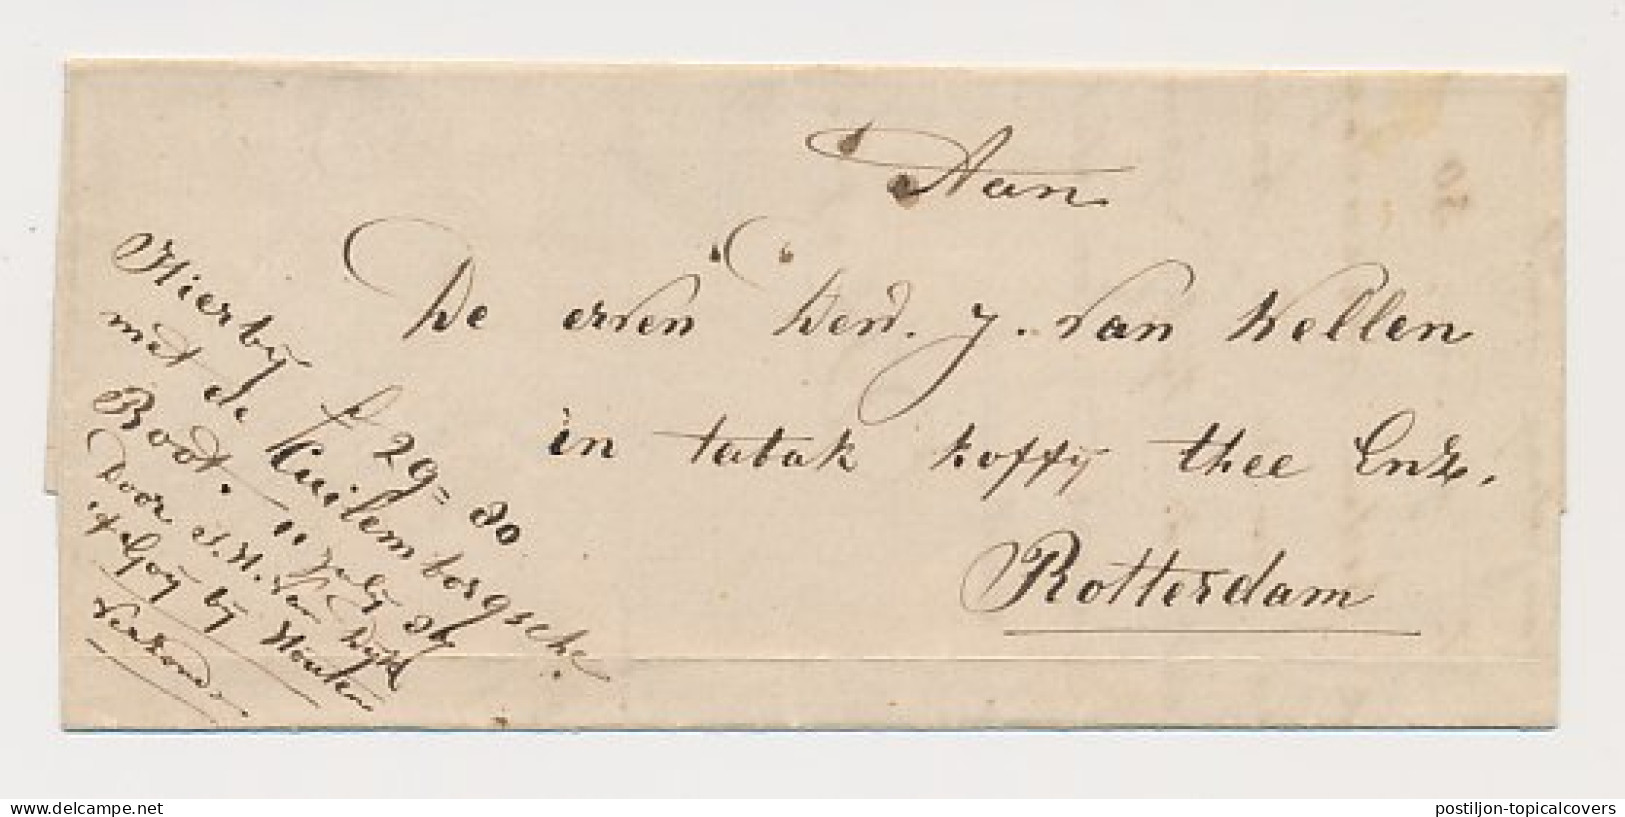 Aan
De erven Wed. J. van Nellen
in tabak koffij thee Enz.
Rotterdam
Hierbij ƒ 29= 80
met de Cuilemborgsche
Boot. 11 July
Door J. H. van Dijk
't Goij bij Houten
Verzond.
© the-collectors-company.com
postiljon-topicalcovers